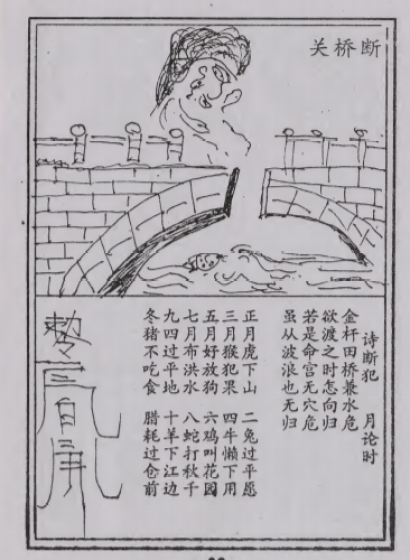 断桥关
诗断犯 月论时
金杆田桥兼水危
欲渡之时怎向归
若是命宫无穴危
虽从波浪也无归
正月虎下山 二兔过平愿
三月猴犯果 四牛懒下用
五月好放狗 六鸡叫花园
七月布洪水 八蛇打秋千
九四过平地 十羊下江边
冬猪不吃食 腊耗过仓前